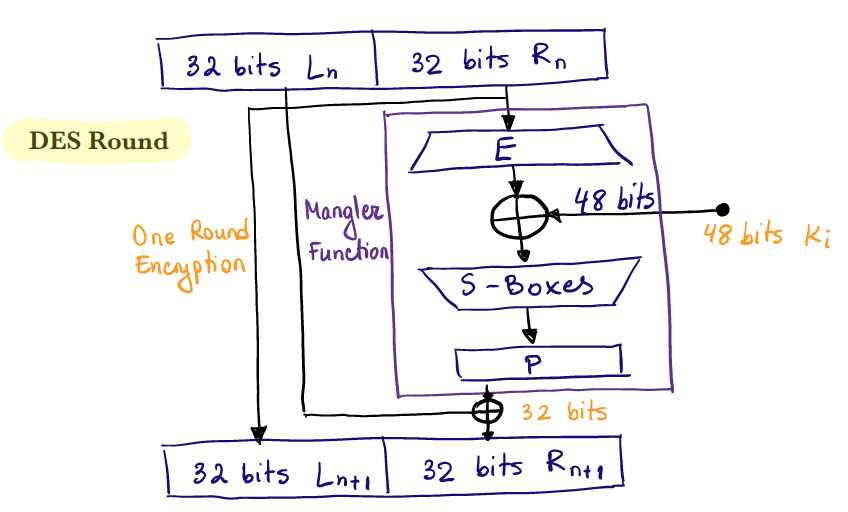 32 bits Ln
32 bits Rn
DES Round
E
48 bits
48 bits Ki
Mangler
Function
One Round
Encryption
S-Boxes
P
32 bits
32 bits Ln+1
32 bits Rn+1